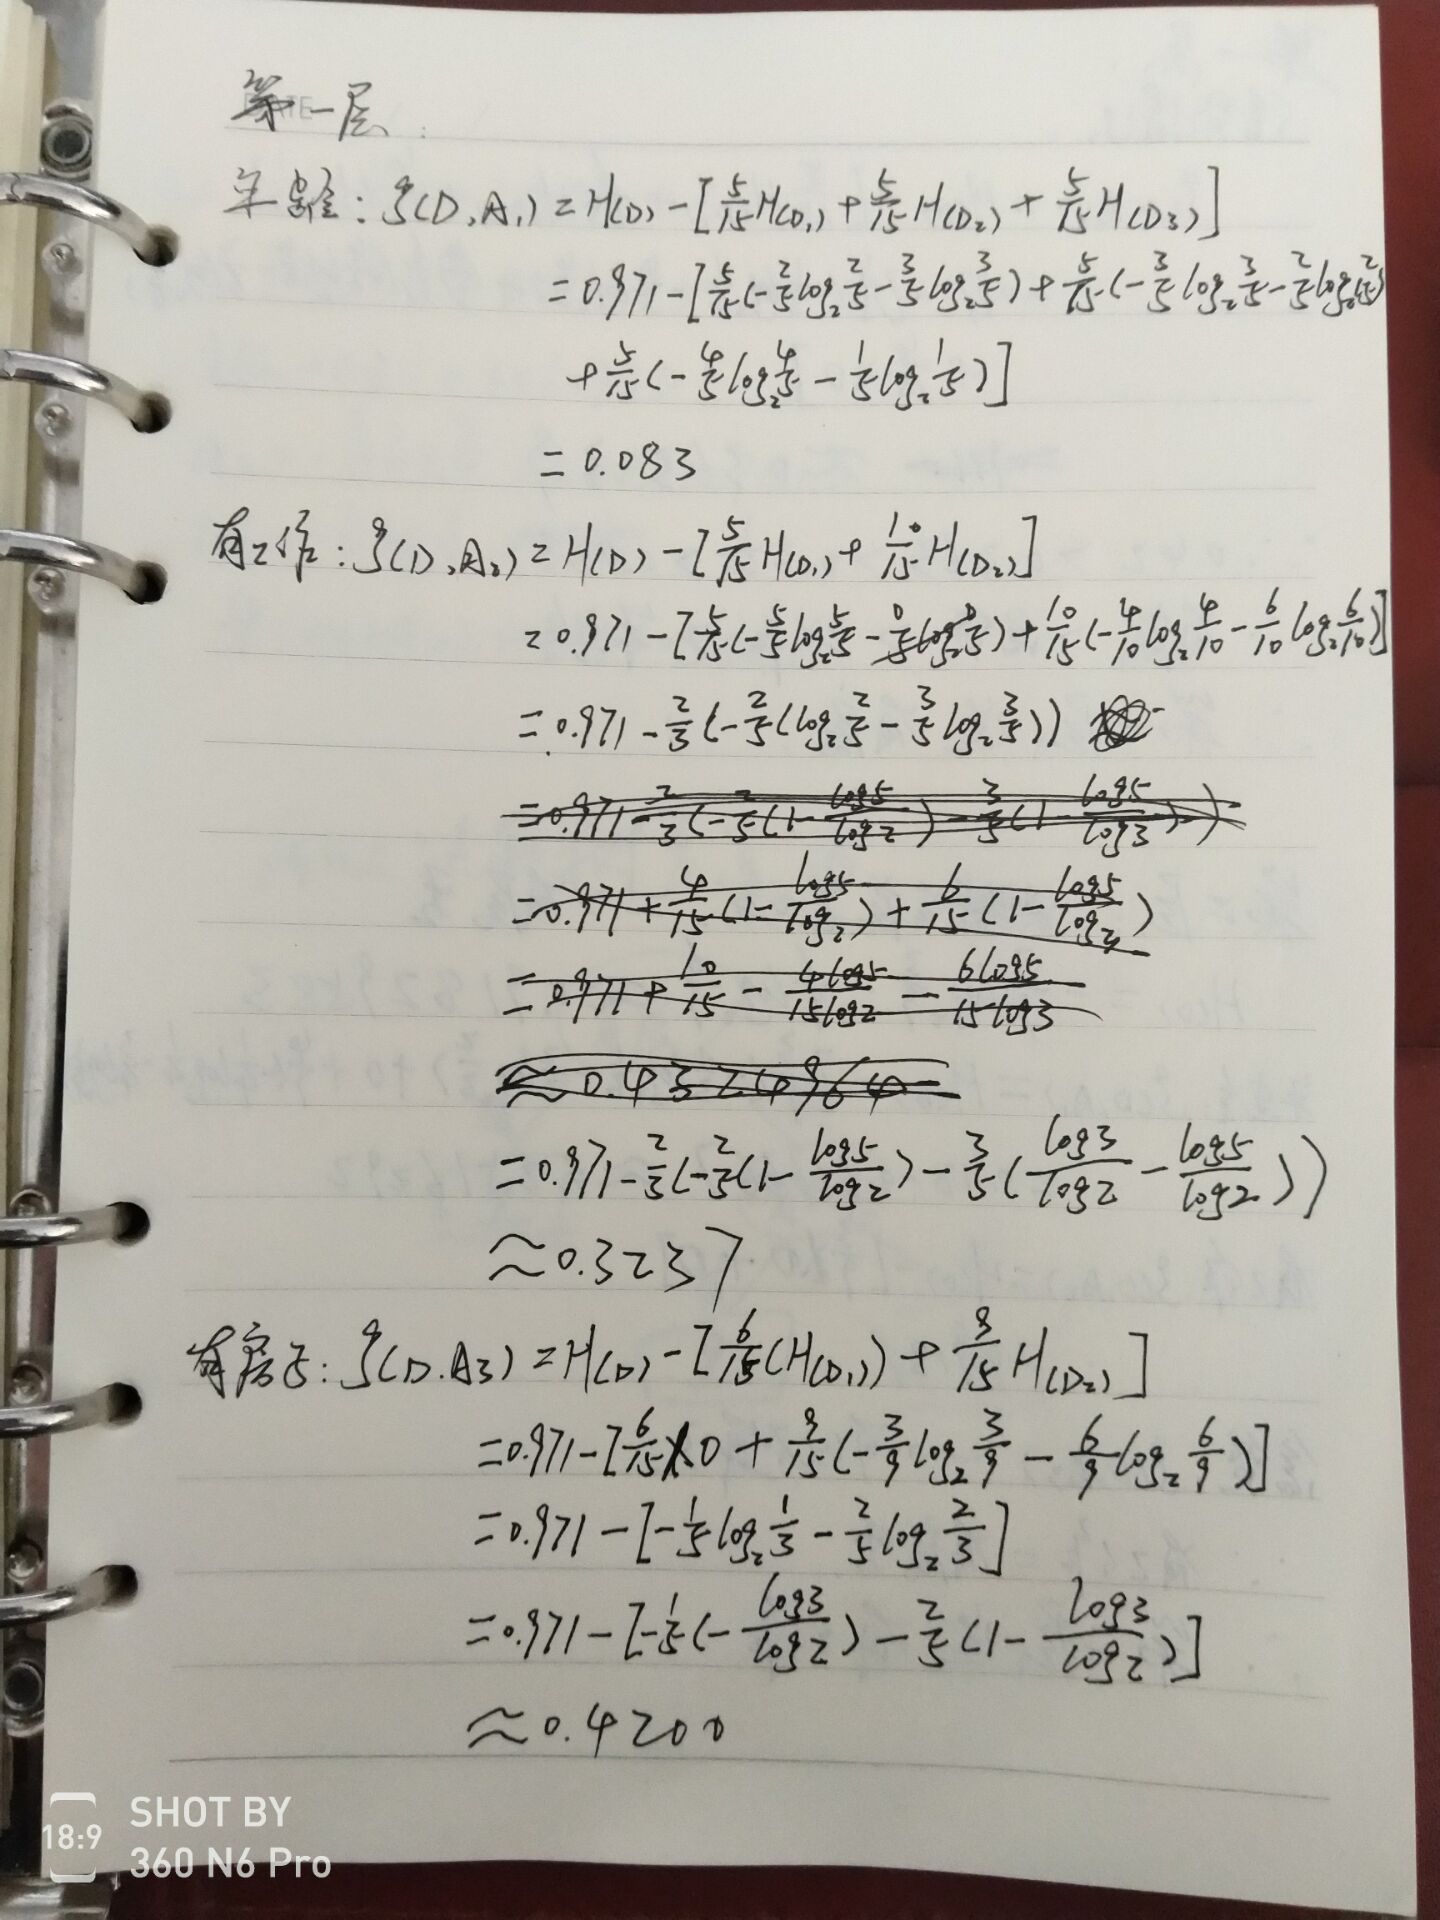 第一层
年龄: g(D,A₁) = H(D) - [5/15 H(D₁) + 5/15 H(D₂) + 5/15 H(D₃)]
= 0.971 - [5/15(-2/5 log₂ 2/5 - 3/5 log₂ 3/5) + 5/15(-3/5 log₂ 3/5 - 2/5 log₂ 2/5)
+ 5/15(-4/5 log₂ 4/5 - 1/5 log₂ 1/5)]
= 0.083
有工作: g(D,A₂) = H(D) - [5/15 H(D₁) + 10/15 H(D₂)]
= 0.971 - [5/15(-5/5 log₂ 5/5 - 0/5 log₂ 0/5) + 10/15(-4/10 log₂ 4/10 - 6/10 log₂ 6/10)]
= 0.971 - 2/3(-2/5(log₂ 2/5 - 3/5 log₂ 3/5))
= 0.971 - 2/3(-2/5(1 - log5/log2) - 3/5(1 - log5/log3))
= 0.971 + 4/15(1 - log5/log2) + 6/15(1 - log5/log2)
= 0.971 + 10/15 - 4log5/15log2 - 6log5/15log3
≈ 0.4324964
= 0.971 - 2/3(-2/5(1 - log5/log2) - 3/5(log3/log2 - log5/log2))
≈ 0.3237
有房子: g(D.A3) = H(D) - [6/15(H(D₁)) + 9/15 H(D₂)]
= 0.971 - [6/15 × 0 + 9/15(-3/9 log₂ 3/9 - 6/9 log₂ 6/9)]
= 0.971 - [-1/5 log₂ 1/3 - 2/5 log₂ 2/3]
= 0.971 - [-1/5(-log3/log2) - 2/5(1 - log3/log2)]
≈ 0.4200
18:9
SHOT BY
360 N6 Pro